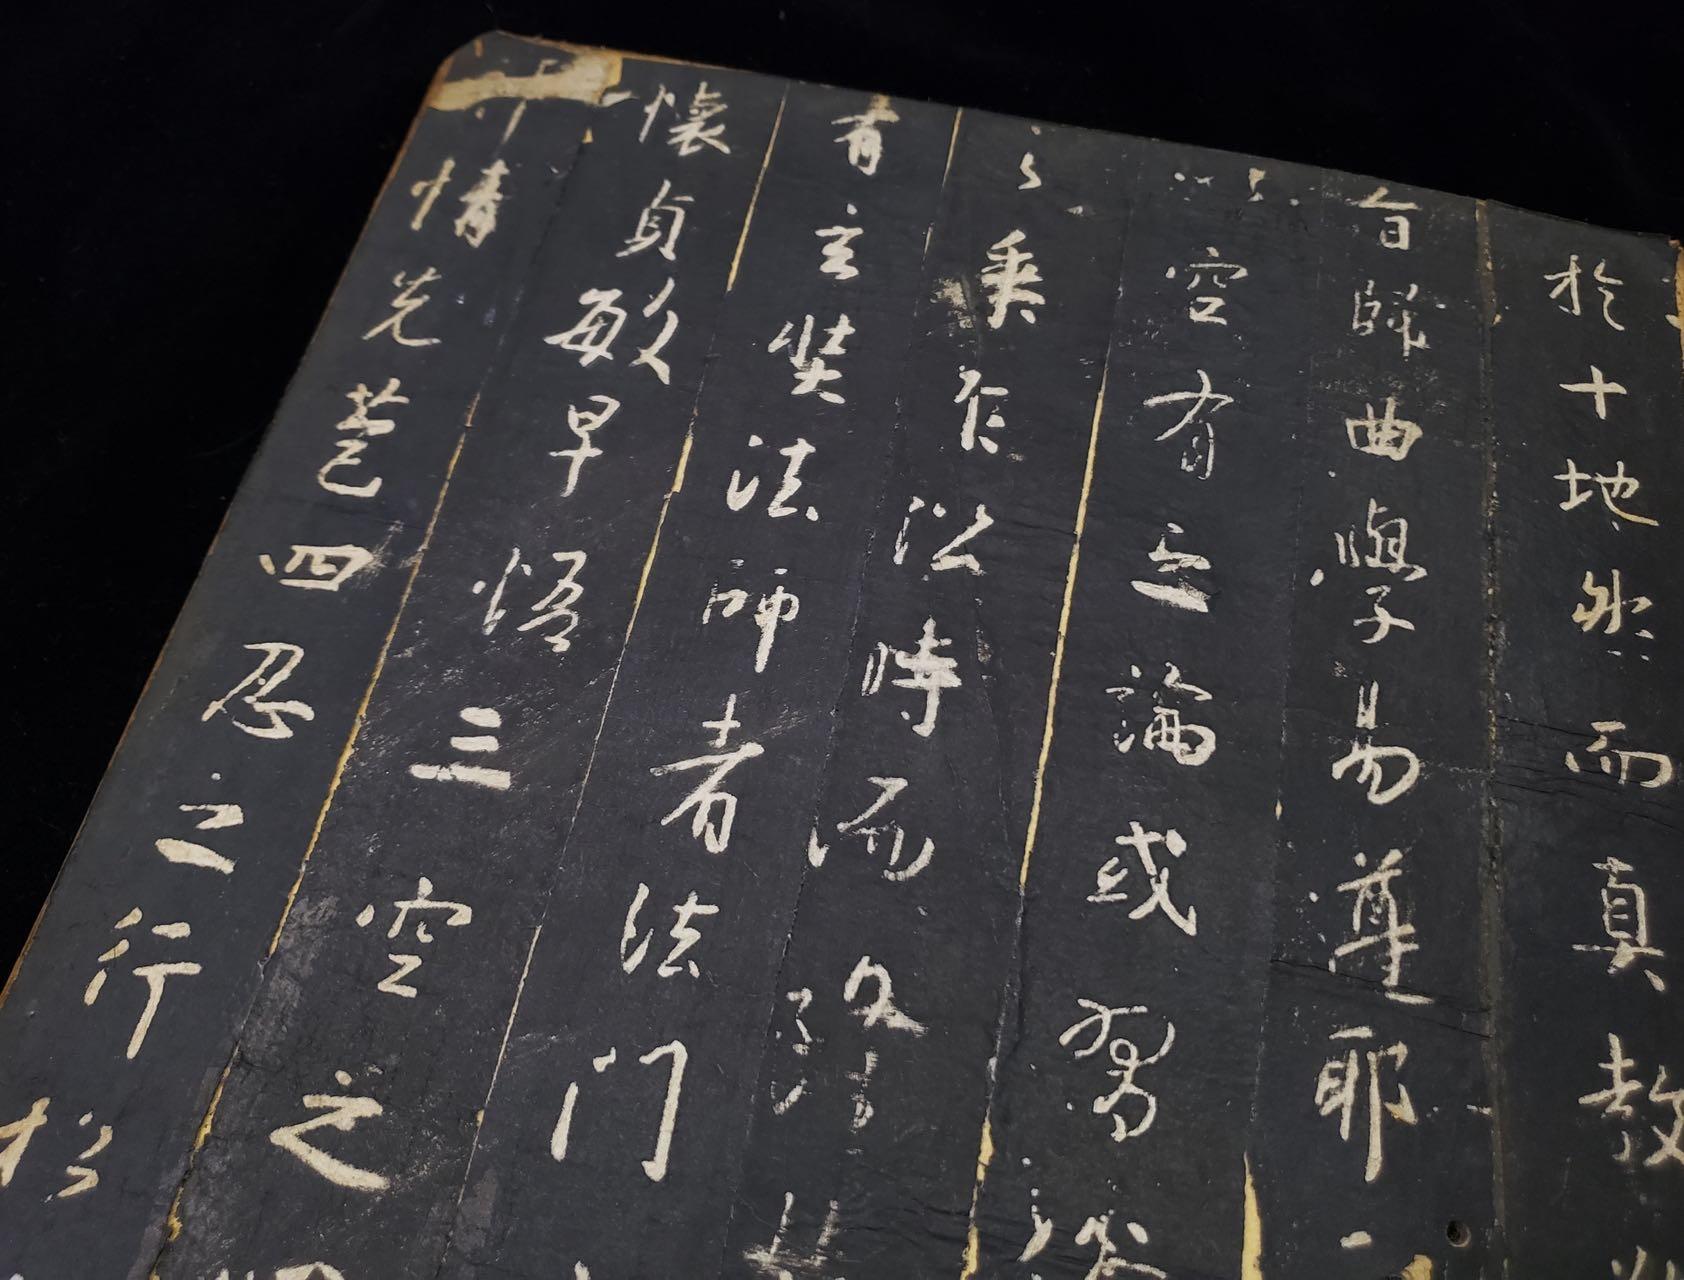 於十地然而真教
旨歸曲學易遵耶一
空有之論或習
乘乍沿時而
有玄奘法師者法門
懷貞敏早悟三空之
情先苞四忍之行松